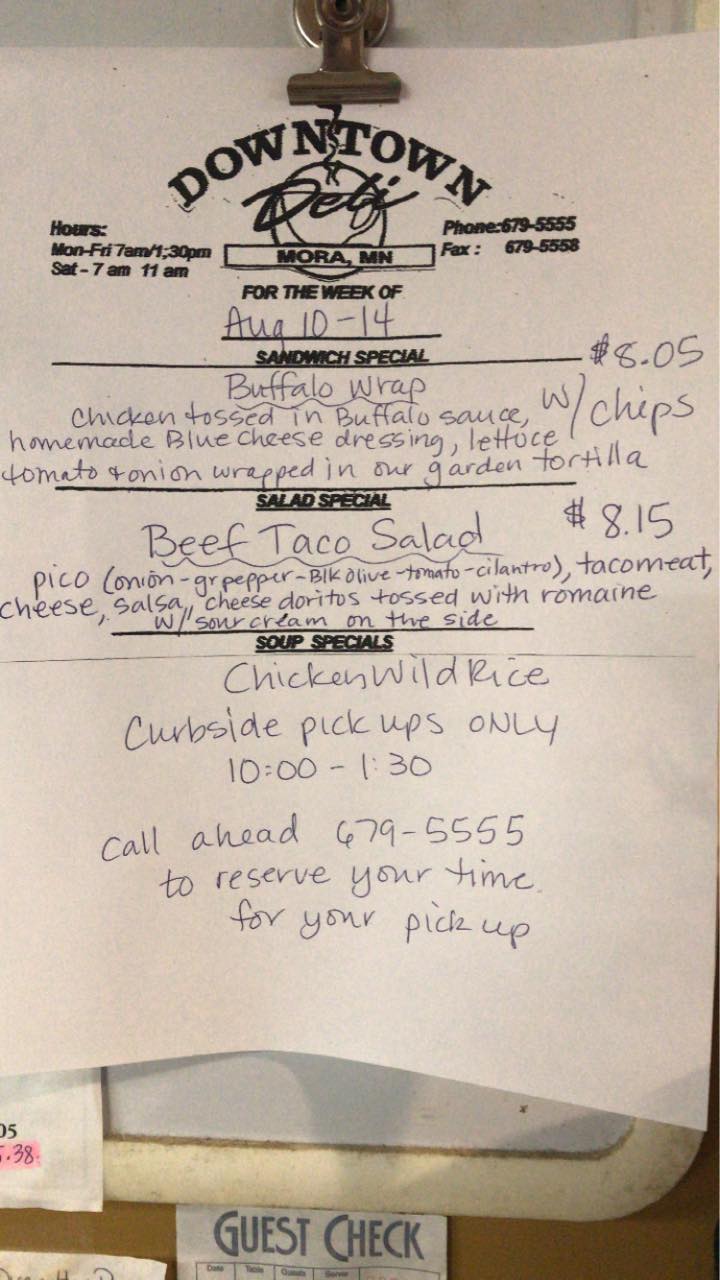 DOWNTOWN
Deli
MORA, MN
Hours:
Mon-Fri 7am/1;30pm
Sat - 7 am 11 am
Phone:679-5555
Fax : 679-5558
FOR THE WEEK OF
Aug 10-14
SANDWICH SPECIAL
$8.05
Buffalo Wrap
Chicken tossed in Buffalo sauce, w/ chips
homemade Blue cheese dressing, lettuce
tomato & onion wrapped in our garden tortilla
SALAD SPECIAL
Beef Taco Salad $ 8.15
pico (onion-gr pepper-Blk olive-tomato-cilantro), taco meat,
cheese, salsa, cheese doritos tossed with romaine
w/ sour cream on the side
SOUP SPECIALS
Chicken Wild Rice
Curbside pick ups ONLY
10:00 - 1:30
Call ahead 679-5555
to reserve your time
for your pick up
05
.38
GUEST CHECK
Date Table Guests Server